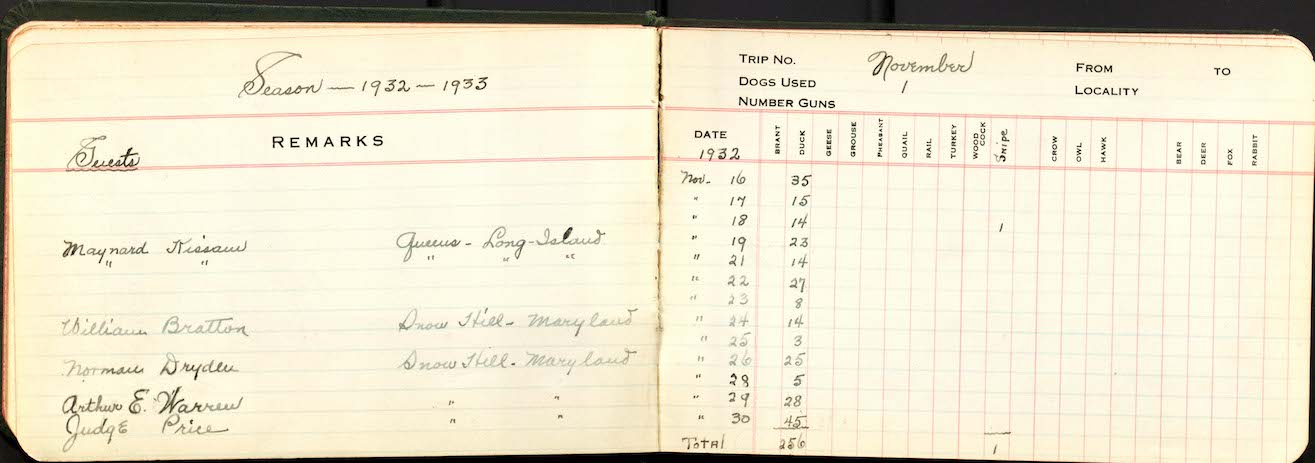 Season — 1932 — 1933
REMARKS
Guests
Maynard Kissam Queens - Long-Island
" " " " "
William Bratton Snow Hill - Maryland
Norman Dryden Snow Hill - Maryland
Arthur E. Warren " "
Judge Price " "
TRIP NO. November FROM TO
DOGS USED 1 LOCALITY
NUMBER GUNS
DATE BRANT DUCK GEESE GROUSE PHEASANT QUAIL RAIL TURKEY WOODCOCK Snipe CROW OWL HAWK BEAR DEER FOX RABBIT
1932
Nov. 16 35
" 17 15
" 18 14 1
" 19 23
" 21 14
" 22 27
" 23 8
" 24 14
" 25 3
" 26 25
" 28 5
" 29 28
" 30 45
Total 256 1